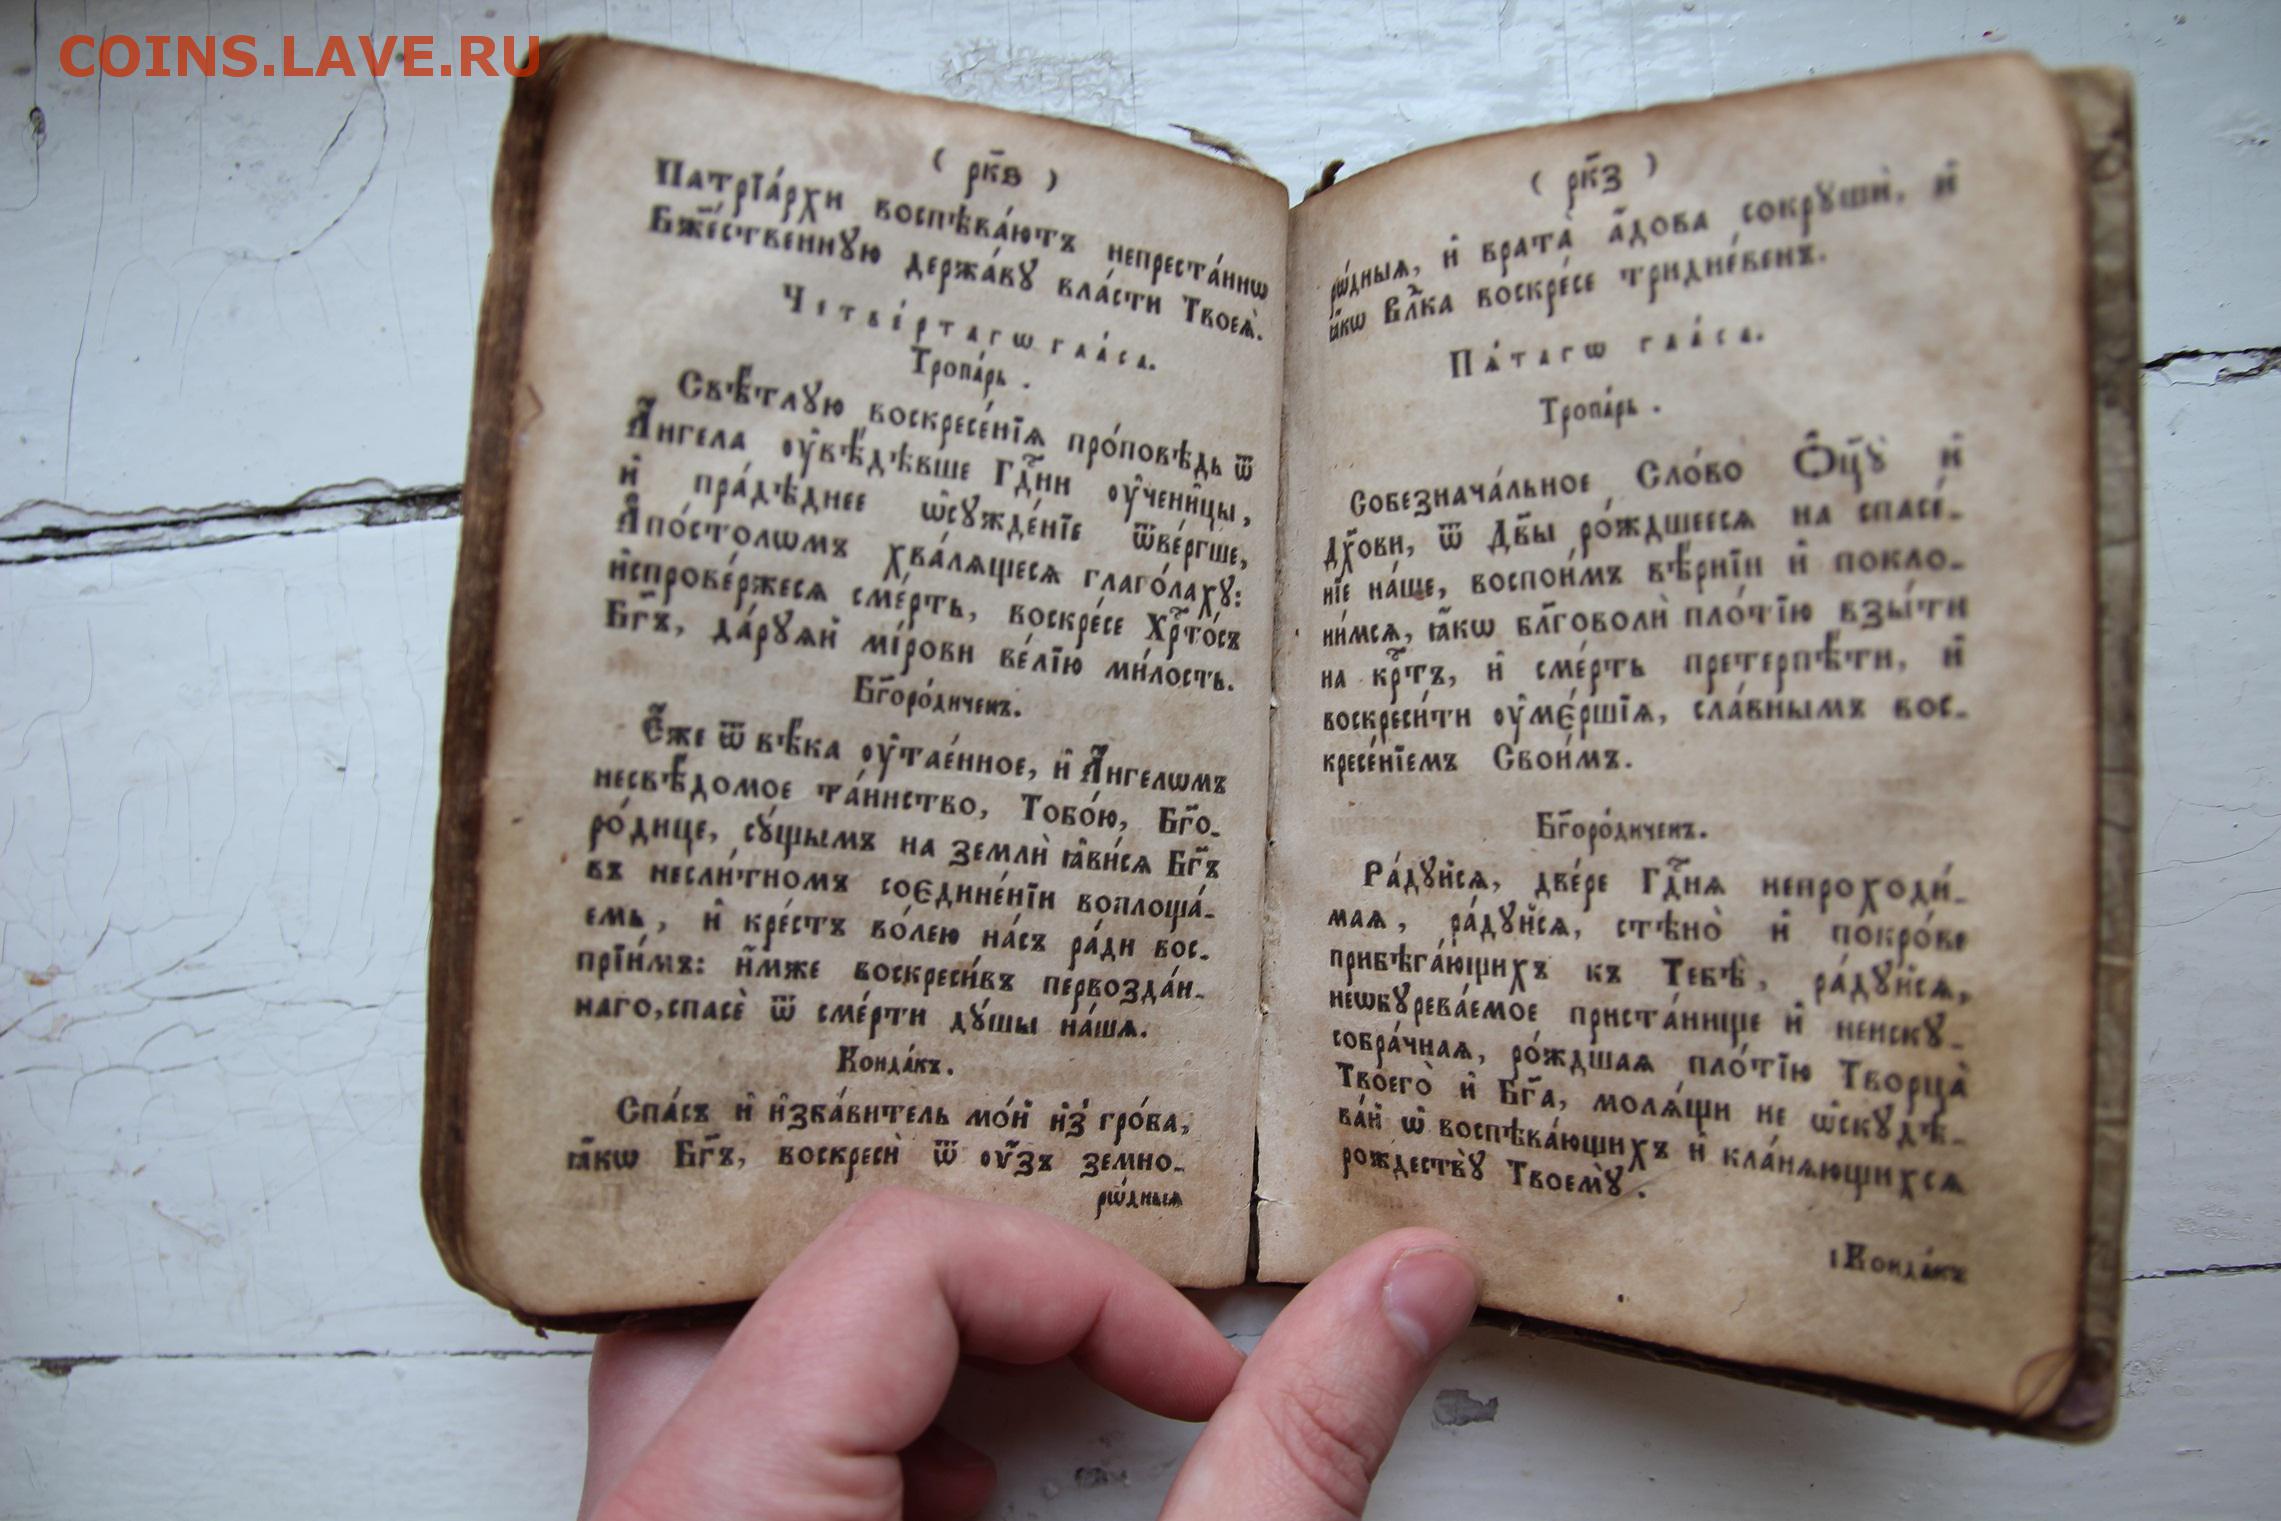 COINS.LAVE.RU
( рк҃в )
Патрїа́рхи воспѣва́ютъ непреста́ннѡ
Бж҃е́ственнꙋю держа́вꙋ вла́сти Твоеѧ̀.
Четве́ртагѡ гла́са.
Тропа́рь.
Свѣ́тлꙋю воскресе́нїѧ про́повѣдь ѿ
А҆́нгела ᲂу҆вѣ́дѣвше Гд҃ни ᲂу҆чени̑цы,
и҆ пра́дѣднее ѡ҆сꙋжде́нїе ѿве́ргше,
А҆по́столѡмъ хва́лѧщесѧ глаго́лахꙋ:
и҆спрове́ржесѧ сме́рть, воскре́се Хр҃то́съ
Бг҃ъ, да́рꙋѧй мі́рови ве́лїю ми́лость.
Бг҃оро́диченъ.
Є҆́же ѿ вѣ́ка ᲂу҆тае́нное, и҆ А҆́нгелѡмъ
несвѣ́домое та́инство, Тобо́ю, Бг҃о-
ро́дице, сꙋ́щымъ на землѝ ꙗ҆ви́сѧ Бг҃ъ
въ несли́тномъ соєдине́нїи воплоща́-
емь, и҆ кре́стъ во́лею на́съ ра́ди вос-
прїи́мъ: и҆́мже воскреси́въ первозда́н-
наго, спасѐ ѿ сме́рти дꙋ́шы на́шѧ.
Конда́къ.
Спа́съ и҆ и҆зба́витель мо́й и҆з̾ гро́ба,
ꙗ҆́кѡ Бг҃ъ, воскресѝ ѿ ᲂу҆́зъ земно-
рѡ́дныѧ
( рк҃з )
рѡ́дныѧ, и҆ врата̀ а҆́дова сокрꙋшѝ, и҆
ꙗ҆́кѡ Вл҃ка воскре́се тридне́венъ.
Пѧ́тагѡ гла́са.
Тропа́рь.
Собезнача́льное Сло́во Ѻ҆ц҃ꙋ̀ и҆
дх҃ови, ѿ Дв҃ы ро́ждшеесѧ на спасе́-
нїе на́ше, воспои́мъ вѣ́рнїи и҆ покло-
ни́мсѧ, ꙗ҆́кѡ бл҃говолѝ пло́тїю взы́ти
на кр҃тъ, и҆ сме́рть претерпѣ́ти, и҆
воскреси́ти ᲂу҆ме́ршїѧ, сла́внымъ вос-
кресе́нїемъ Свои́мъ.
Бг҃оро́диченъ.
Ра́дꙋйсѧ, две́ре Гд҃нѧ непроходи́-
маѧ, ра́дꙋйсѧ, стѣно̀ и҆ покро́ве
прибѣга́ющихъ къ Тебѣ̀, ра́дꙋйсѧ,
неѡбꙋрева́емое приста́нище и҆ неискꙋ-
собра́чнаѧ, ро́ждшаѧ пло́тїю Творца̀
Твоего̀ и҆ Бг҃а, молѧ́щи не ѡ҆скꙋдѣ-
ва́й ѡ҆ воспѣва́ющихъ и҆ кла́нѧющихсѧ
рождествꙋ̀ Твоемꙋ̀.
Конда́къ